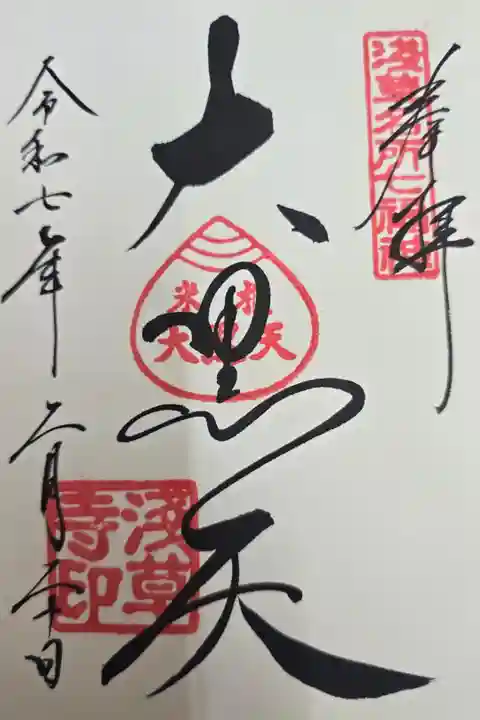 奉拝
淺草名所七福神
大黒天
米櫃
大黒天
淺草
寺印
令和七年二月二十日